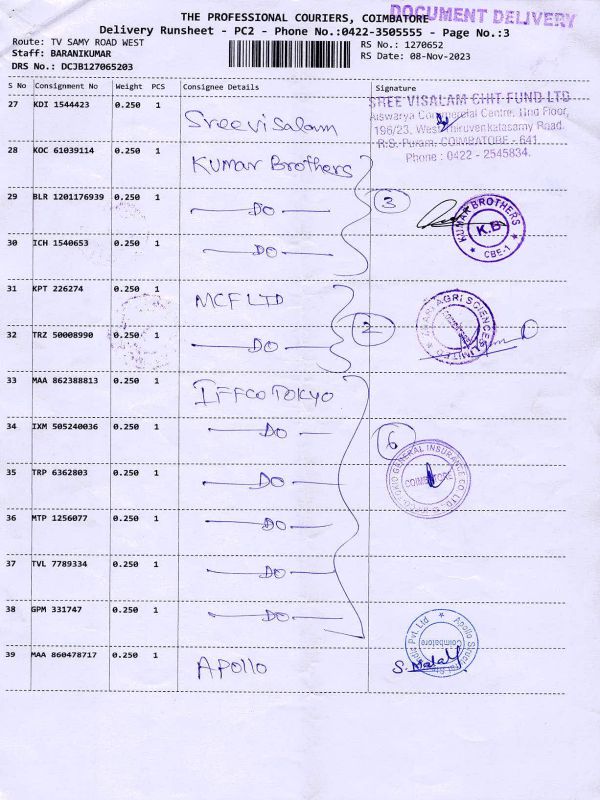 DOCUMENT DELIVERY
THE PROFESSIONAL COURIERS, COIMBATORE
Delivery Runsheet - PC2 - Phone No.:0422-3505555 - Page No.:3
Route: TV SAMY ROAD WEST
Staff: BARANIKUMAR
DRS No.: DCJB127065203
RS No.: 1270652
RS Date: 08-Nov-2023
S No Consignment No Weight PCS Consignee Details Signature
27 KDI 1544423 0.250 1 Sreevisalam
SREE VISALAM CHIT FUND LTD
Aiswarya Commercial Centre, IInd Floor,
196/23, West Thiruvenkatasamy Road,
R.S. Puram, COIMBATORE - 641
Phone : 0422 - 2545834.
28 KOC 61039114 0.250 1 Kumar Brothers
29 BLR 1201176939 0.250 1 DO 3
KUMAR BROTHERS
K.B
CBE-1
30 ICH 1540653 0.250 1 DO
31 KPT 226274 0.250 1 MCF LTD
AGRI SCIENCES LIMITED
32 TRZ 50008990 0.250 1 DO 2
33 MAA 862388813 0.250 1 IFFCO TOKYO
34 IXM 505240036 0.250 1 DO 6
GENERAL INSURANCE CO. LTD.
COIMBATORE
35 TRP 6362803 0.250 1 DO
36 MTP 1256077 0.250 1 DO
37 TVL 7789334 0.250 1 DO
38 GPM 331747 0.250 1 DO
39 MAA 860478717 0.250 1 APOllO
Apollo
Pvt. Ltd
Coimbatore